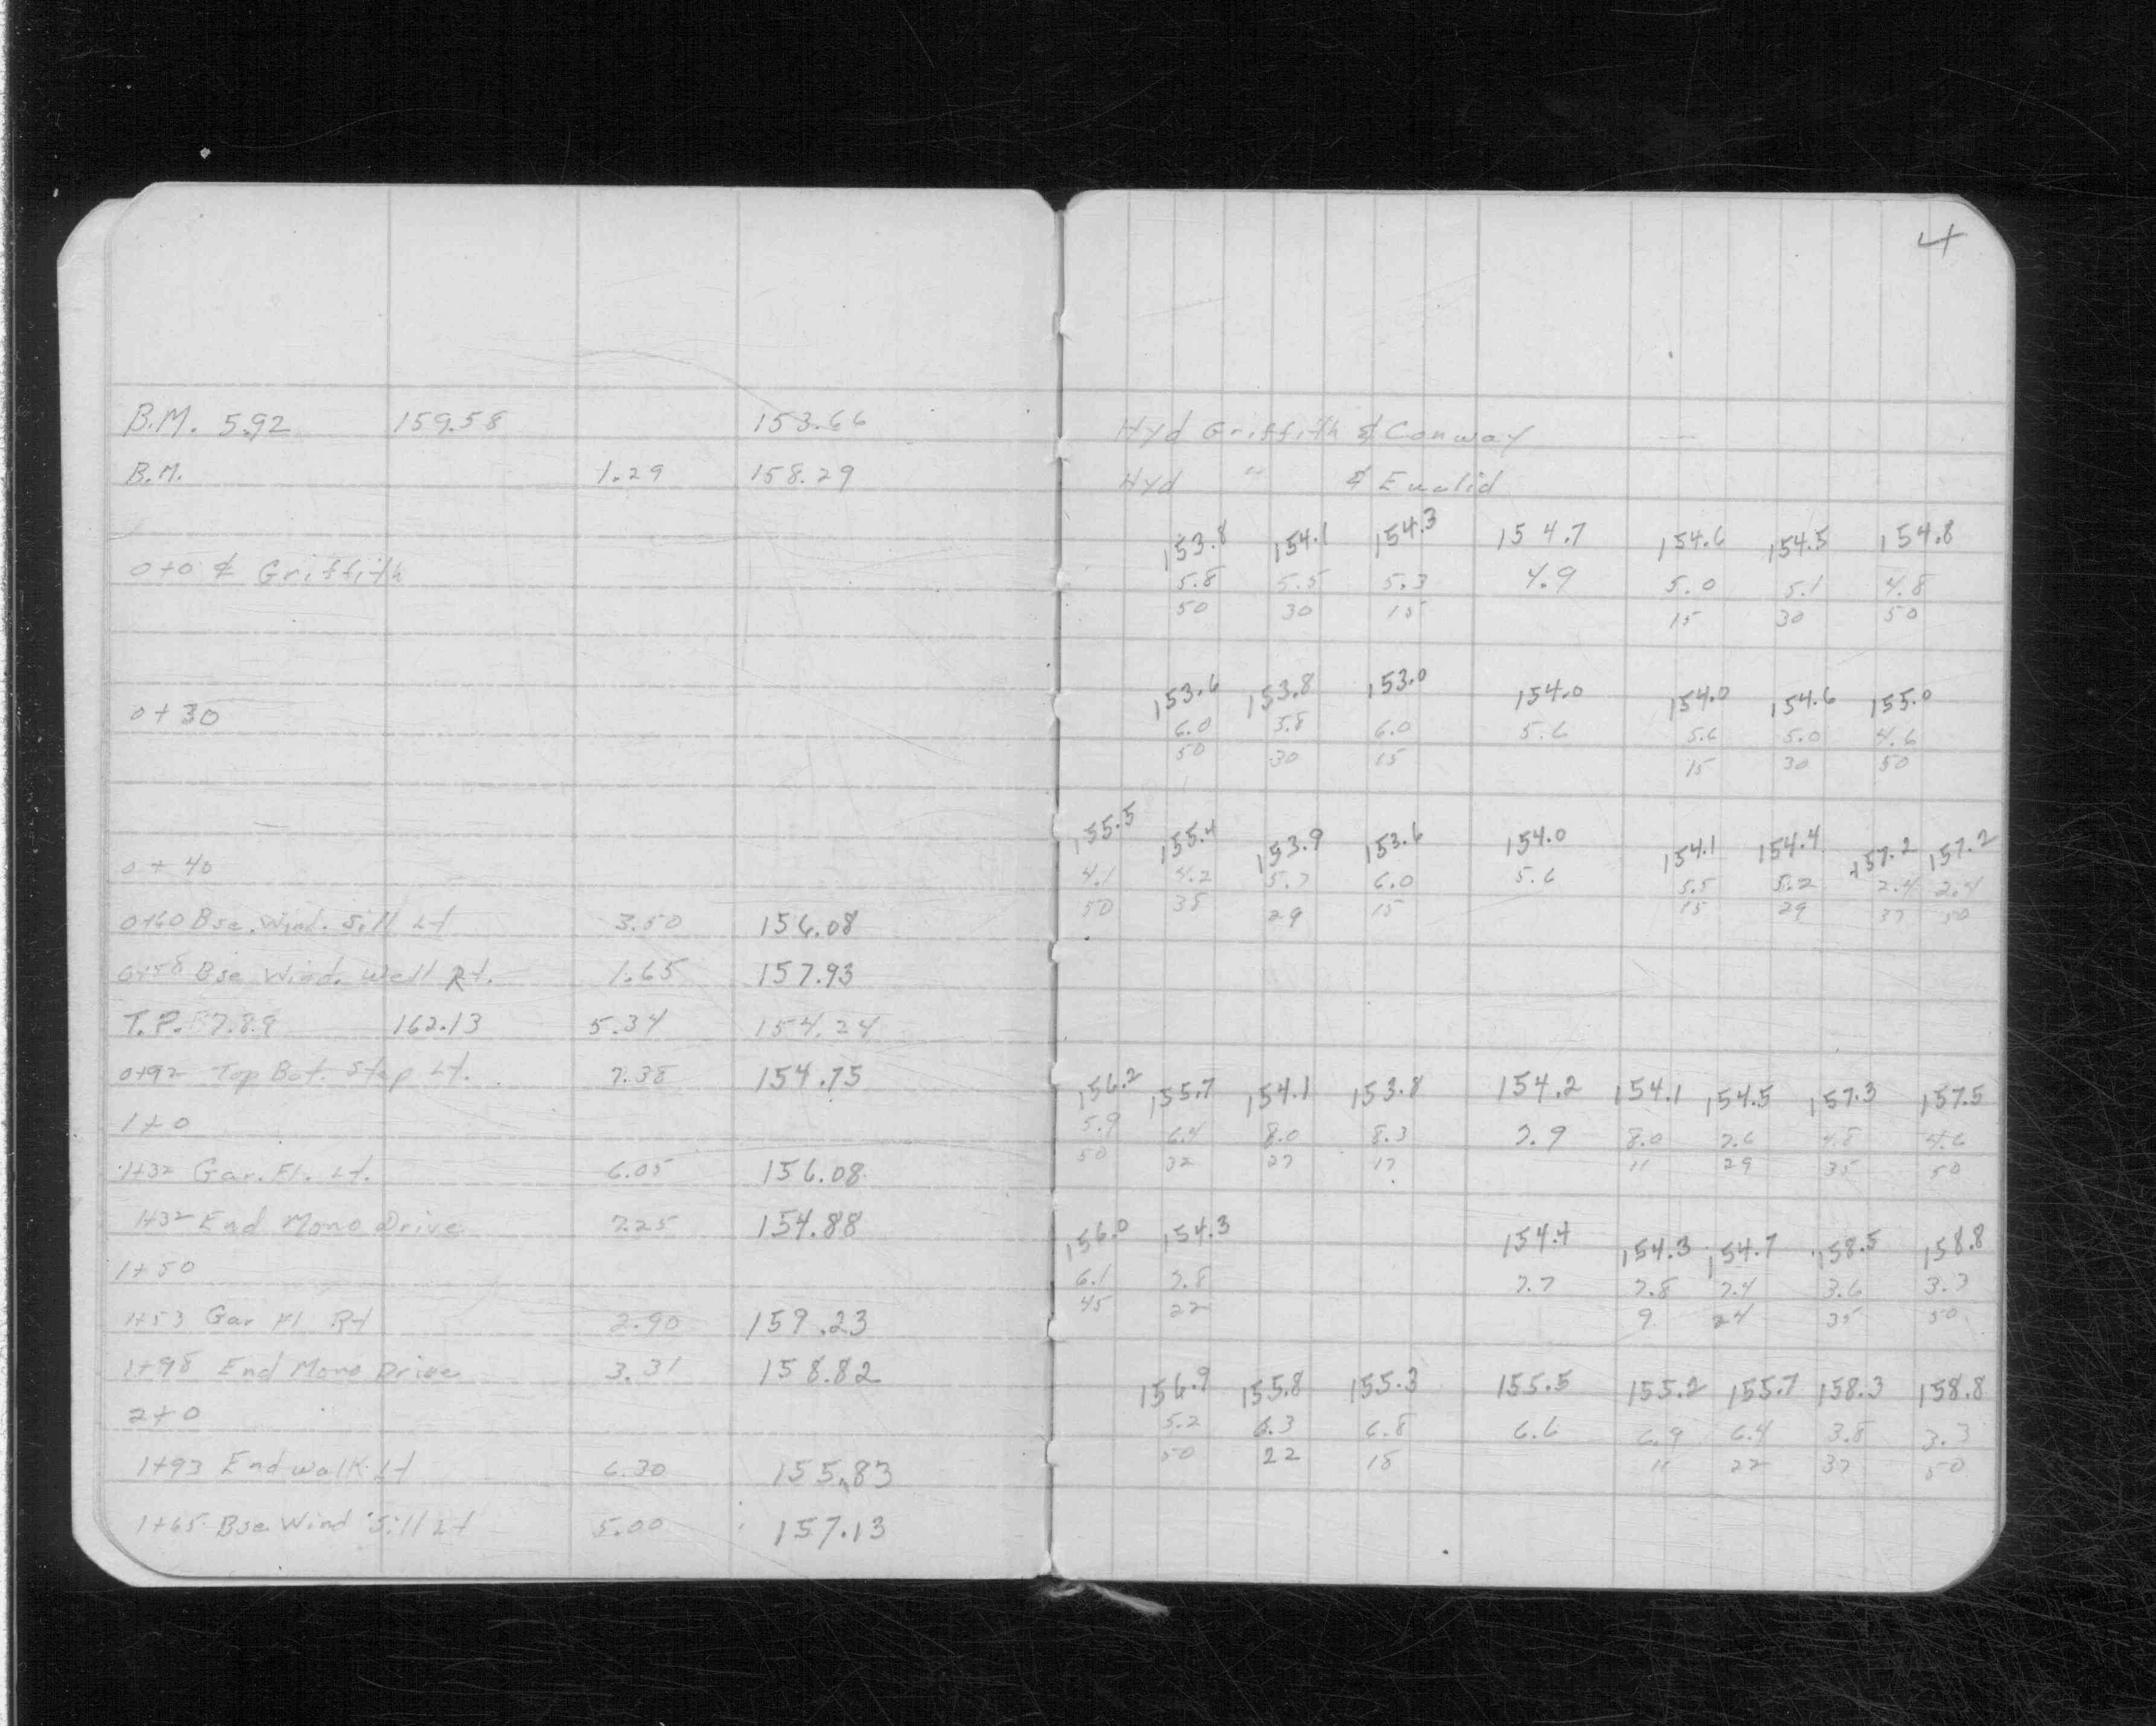 4
B.M. 5.92 159.58 153.66
B.M. 1.29 158.29
0+0 ₵ Griffith
0+30
0+40
0+60 Bse. Wind. Sill Lt 3.50 156.08
0+58 Bse Wind. Well Rt. 1.65 157.93
T.P. 7.89 162.13 5.34 154.24
0+92 Top Bot. Step Lt. 7.38 154.75
1+0
1+32 Gar. Fl. Lt. 6.05 156.08
1+32 End Mono Drive 7.25 154.88
1+50
1+53 Gar Fl Rt 2.90 159.23
1+98 End Mono Drive 3.31 158.82
2+0
1+93 End walk Lt 6.30 155.83
1+65 Bse Wind Sill Lt 5.00 157.13
Hyd Griffith & Conway
Hyd " & Euclid
153.8 154.1 154.3 154.7 154.6 154.5 154.8
5.8 5.5 5.3 4.9 5.0 5.1 4.8
50 30 15 15 30 50
153.6 153.8 153.0 154.0 154.0 154.6 155.0
6.0 5.8 6.0 5.6 5.6 5.0 4.6
50 30 15 15 30 50
155.5 155.4 153.9 153.6 154.0 154.1 154.4 157.2 157.2
4.1 4.2 5.7 6.0 5.6 5.5 5.2 2.4 2.4
50 38 29 15 15 29 37 50
156.2 155.7 154.1 153.8 154.2 154.1 154.5 157.3 157.5
5.9 6.4 8.0 8.3 7.9 8.0 7.6 4.8 4.6
50 32 27 17 11 29 35 50
156.0 154.3 154.4 154.3 154.7 158.5 158.8
6.1 7.8 7.7 7.8 7.4 3.6 3.3
45 22 9 24 35 50
156.9 155.8 155.3 155.5 155.2 155.7 158.3 158.8
5.2 6.3 6.8 6.6 6.9 6.4 3.8 3.3
50 22 18 11 22 37 50